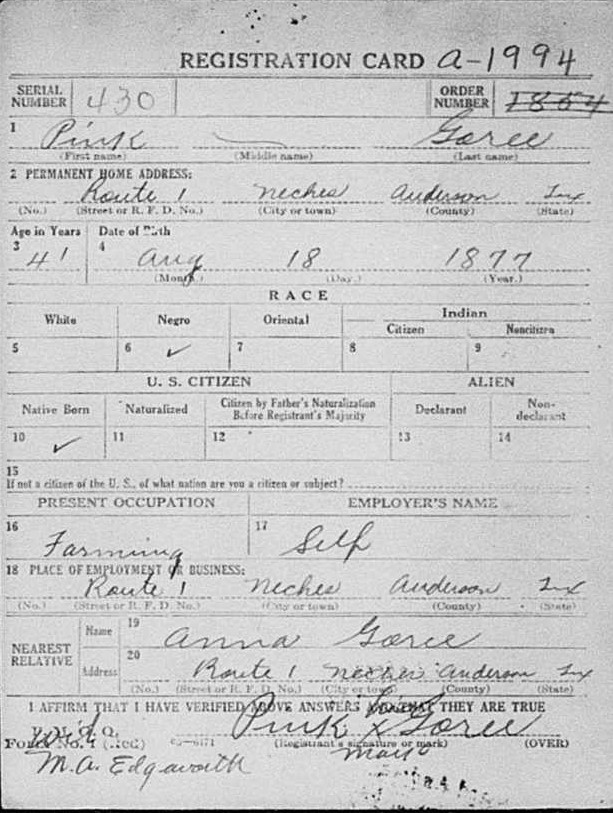 REGISTRATION CARD A-1994
SERIAL NUMBER 430 ORDER NUMBER 1854
1 Pink Goree
(First name) (Middle name) (Last name)
2 PERMANENT HOME ADDRESS:
Route 1 Neches Anderson Tex
(No.) (Street or R. F. D. No.) (City or town) (County) (State)
Age in Years Date of Birth
3 41 4 Aug 18 1877
(Month.) (Day.) (Year.)
RACE
White Negro Oriental Indian
Citizen Noncitizen
5 6 ✓ 7 8 9
U. S. CITIZEN ALIEN
Native Born Naturalized Citizen by Father's Naturalization Before Registrant's Majority Declarant Non-declarant
10 ✓ 11 12 13 14
15
If not a citizen of the U. S., of what nation are you a citizen or subject?
PRESENT OCCUPATION EMPLOYER'S NAME
16 Farming 17 Self
18 PLACE OF EMPLOYMENT OR BUSINESS:
Route 1 Neches Anderson Tex
(No.) (Street or R. F. D. No.) (City or town) (County) (State)
NEAREST RELATIVE Name 19 Anna Goree
Address 20 Route 1 Neches Anderson Tex
(No.) (Street or R. F. D. No.) (City or town) (County) (State)
I AFFIRM THAT I HAVE VERIFIED ABOVE ANSWERS AND THAT THEY ARE TRUE
Pink x Goree
Form No. 1 (Red) (Registrant's signature or mark) (OVER)
M.A. Edgaworth Mark